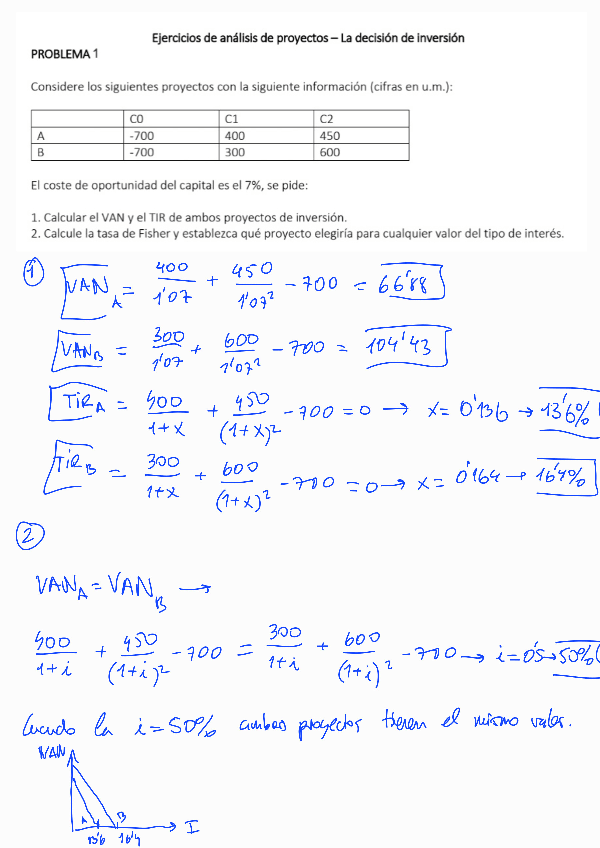 Ejercicios de análisis de proyectos – La decisión de inversión
PROBLEMA 1
Considere los siguientes proyectos con la siguiente información (cifras en u.m.):
C0 C1 C2
A -700 400 450
B -700 300 600
El coste de oportunidad del capital es el 7%, se pide:
1. Calcular el VAN y el TIR de ambos proyectos de inversión.
2. Calcule la tasa de Fisher y establezca qué proyecto elegiría para cualquier valor del tipo de interés.
① VAN_A = 400/1'07 + 450/1'07² - 700 = 66'88
VAN_B = 300/1'07 + 600/1'07² - 700 = 104'43
TiR_A = 400/1+x + 450/(1+x)² - 700 = 0 → x = 0'136 → 13'6%
TiR_B = 300/1+x + 600/(1+x)² - 700 = 0 → x = 0'164 → 16'4%
②
VAN_A = VAN_B →
400/1+i + 450/(1+i)² - 700 = 300/1+i + 600/(1+i)² - 700 → i = 0'5 → 50%
Cuando la i = 50% ambos proyectos tienen el mismo valor.
VAN
A B
I
13'6 16'4